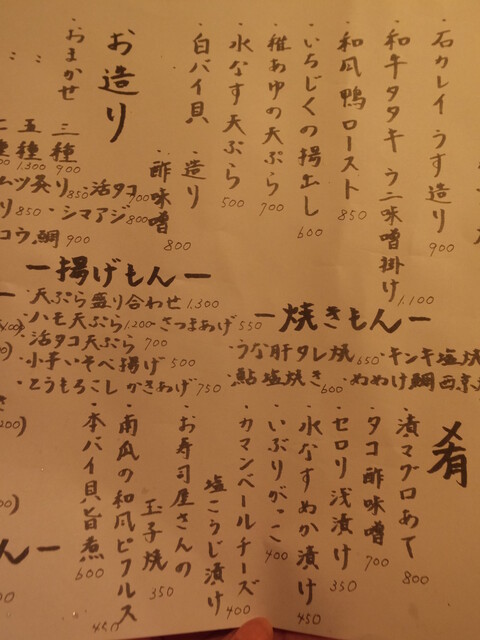 ・石カレイ うす造り 900
・和牛タタキ ウニ味噌掛け 1.100
・和風 鴨ロースト 850
・いちじくの揚出し 600
・稚あゆの天ぷら 700
・水なす天ぷら 500
・白バイ貝 造り 酢味噌 800
お造り
・おまかせ
三種 900
五種 1.300
・活タコ 700
炙り 850
・シマアジ 800
り 850
鯛 900
ー揚げもんー
・天ぷら盛り合わせ 1.300
・ハモ天ぷら 1.200
・さつまあげ 550
・活タコ天ぷら 700
・小芋いそべ揚げ 500
・とうもろこし かきあげ 750
ー焼きもんー
・うな肝タレ焼 650
・キンキ塩焼
・鮎塩焼き 600
・ぬぬけ鯛西京
肴
・漬マグロあて 800
・タコ酢味噌 700
・セロリ浅漬け 350
・水なすぬか漬け 450
・いぶりがっこ 400
・カマンベールチーズ 塩こうじ漬け 400
・お寿司屋さんの 玉子焼 350
・南瓜の和風ピクルス 450
・本バイ貝旨煮 600